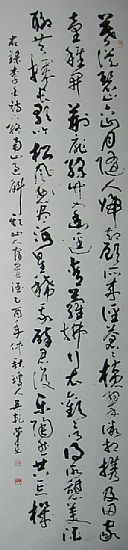 暮從碧山下山月隨人歸卻顧所來徑蒼蒼橫翠微相攜及田家
童稚開荊扉綠竹入幽徑青蘿拂行衣歡言得所憩美酒
聊共揮長歌吟松風曲盡河星稀我醉君復樂陶然共忘機
右錄李白詩下終南山過斛斯山人宿置酒乙酉年仲秋